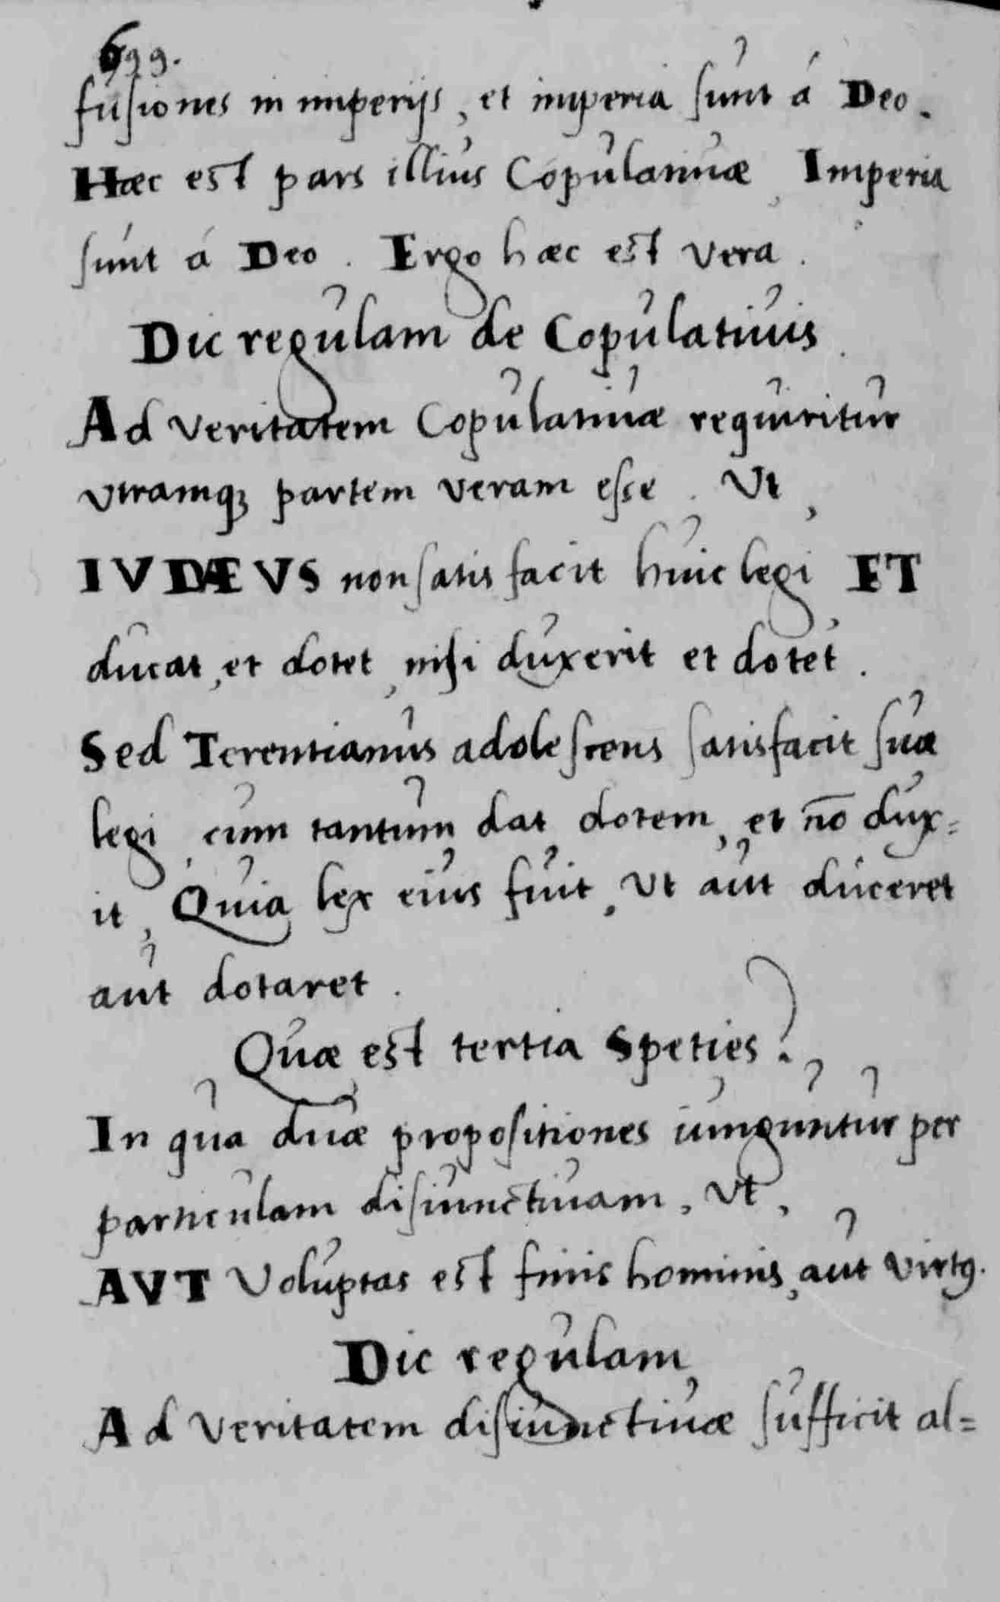 699.
fusiones in imperijs, et imperia sunt á Deo.
Hæc est pars illius Copulatiuæ, Imperia
sunt á Deo. Ergo hæc est vera.
Dic regulam de Copulatiuis.
Ad veritatem Copulatiuæ requiritur
vtramqꝫ partem veram esse. Vt,
IVDÆVS non satis facit huic legi ET
ducat, et dotet, nisi duxerit et dotet.
Sed Terentianus adolescens satisfacit suæ
legi, cum tantum dat dotem, et nō dux=
it, Quia lex eius fuit, Vt aut duceret
aut dotaret.
Quæ est tertia Speties?
In qua duæ propositiones iunguntur per
particulam disiunctiuam, Vt,
AVT Voluptas est finis hominis, aut virtꝰ.
Dic regulam,
Ad veritatem disiunctiuæ sufficit al=